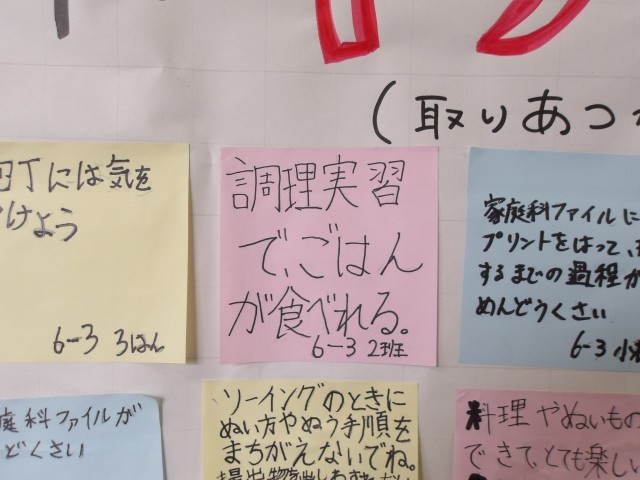 (取りあつ
包丁には気を
けよう
6-3 3はん
調理実習
で、ごはん
が食べれる。
6-3 2班
家庭科ファイルに
プリントをはって、
するまでの過程が
めんどうくさい
6-3 小
庭科ファイルが
どくさい
ソーイングのときに
ぬい方やぬう手順を
まちがえないでね。
料理やぬいもの
できて、とても楽しい